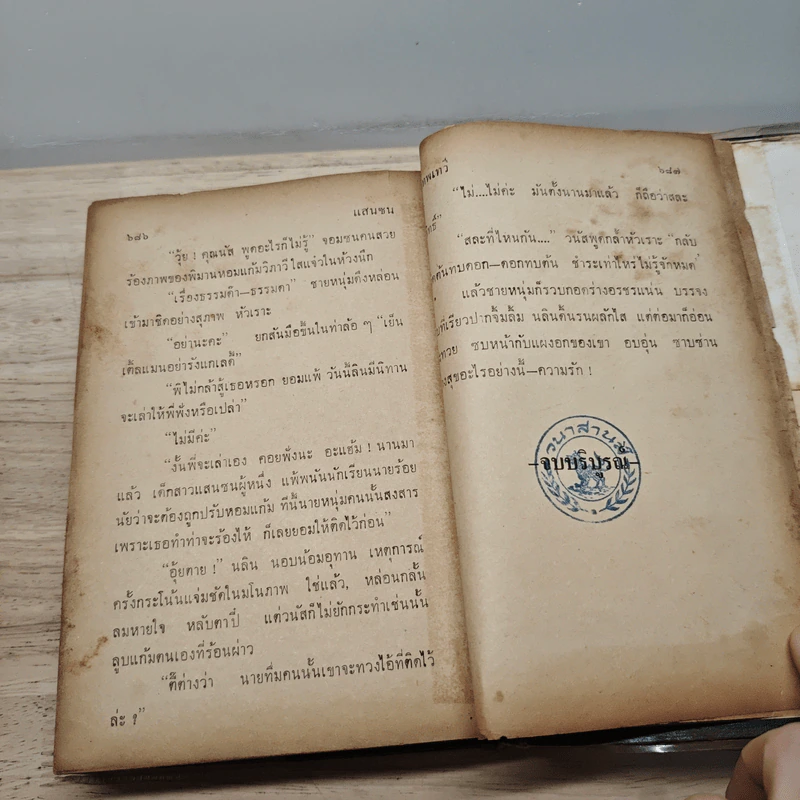 ๖๘๖ แสนซน
“วุ้ย ! คุณนัส พูดอะไรก็ไม่รู้” จอมซนคนสวย
ร้องภาพของพิมานหอมแก้มวิภาวี ใสแจ๋วในห้วงนึก
“เรื่องธรรมด๊า—ธรรมดา” ชายหนุ่มดึงหล่อน
เข้ามาชิดอย่างสุภาพ หัวเราะ
“อย่านะคะ” ยกสันมือขึ้นในท่าล้อ ๆ “เย็น
เติ้ลแมนอย่ารังแกเลดี้”
“พี่ไม่กล้าสู้เธอหรอก ยอมแพ้ วันนี้ลินมีนิทาน
จะเล่าให้พี่ฟังหรือเปล่า”
“ไม่มีค่ะ”
“งั้นพี่จะเล่าเอง คอยฟังนะ อะแฮ้ม ! นานมา
แล้ว เด็กสาวแสนซนผู้หนึ่ง แพ้พนันนักเรียนนายร้อย
นัยว่าจะต้องถูกปรับหอมแก้ม ทีนี้นายหนุ่มคนนั้นสงสาร
เพราะเธอทำท่าจะร้องไห้ ก็เลยยอมให้ติดไว้ก่อน”
“อุ้ยตาย !” นลิน นอบน้อมอุทาน เหตุการณ์
ครั้งกระโน้นแจ่มชัดในมโนภาพ ใช่แล้ว, หล่อนกลั้น
ลมหายใจ หลับตาปี๋ แต่วนัสก็ไม่ยักกระทำเช่นนั้น
ลูบแก้มตนเองที่ร้อนผ่าว
“ตี๊ต่างว่า นายทึ่มคนนั้นเขาจะทวงไอ้ที่ติดไว้
ล่ะ ?”
เทวี ๖๘๗
“ไม่....ไม่ค่ะ มันตั้งนานมาแล้ว ก็ถือว่าสละ
“สละที่ไหนกัน....” วนัสพูดกล้ำหัวเราะ “กลับ
ต้นทบดอก—ดอกทบต้น ชำระเท่าไหร่ไม่รู้จักหมด”
แล้วชายหนุ่มก็รวบกอดร่างอรชรแน่น บรรจง
ที่เรียวปากจิ้มลิ้ม นลินดิ้นรนผลักไส แต่ต่อมาก็อ่อน
ซบหน้ากับแผงอกของเขา อบอุ่น ซาบซ่าน
สุขอะไรอย่างนี้—ความรัก !
—จบบริบูรณ์—
วนาสานส์